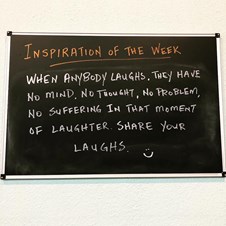 INSPIRATION OF THE WEEK
WHEN ANYBODY LAUGHS, THEY HAVE
NO MIND, NO THOUGHT, NO PROBLEM,
NO SUFFERING IN THAT MOMENT
OF LAUGHTER. SHARE YOUR
LAUGHS.